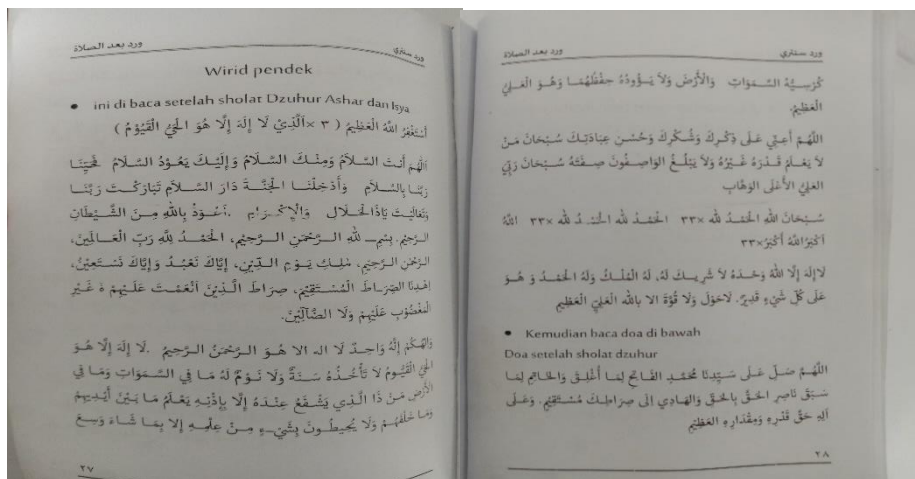 ورد سنتري ورد بعد الصلاة
Wirid pendek
• ini di baca setelah sholat Dzuhur Ashar dan Isya
أَسْتَغْفِرُ اللَّهَ الْعَظِيْمُ ( ٣ ×اَلَّذِيْ لَا إِلَهَ إِلَّا هُوَ الْحَيُّ الْقَيُّوْمُ )
اَللَّهُمَّ أَنْتَ السَّلاَمُ وَمِنْكَ السَّلَامُ وَإِلَيْكَ يَعُوْدُ السَّلَامُ فَحَيِّنَا
رَبَّنَا بِالسَّلَامِ وَأَدْخِلْنَا الْجَنَّةَ دَارَ السَّلَامِ تَبَارَكْتَ رَبَّنَا
وَتَعَالَيْتَ يَاذَا الْجَلَالِ وَالْإِكْرَامِ .أَعُوْذُ بِاللهِ مِنَ الشَّيْطَانِ
الرَّجِيْمِ. بِسْمِ اللهِ الرَّحْمَنِ الرَّحِيْمِ، الْحَمْدُ لِلَّهِ رَبِّ الْعَالَمِيْنَ،
الرَّحْمنِ الرَّحِيْمِ، مَلِكِ يَوْمِ الدِّيْنِ، إِيَّاكَ نَعْبُدُ وَإِيَّاكَ نَسْتَعِيْنُ،
اِهْدِنَا الصِّرَاطَ الْمُسْتَقِيْمَ، صِرَاطَ الَّذِيْنَ اَنْعَمْتَ عَلَيْهِمْ ە غَيْرِ
الْمَغْضُوْبِ عَلَيْهِمْ وَلَا الضَّآلِّيْنَ.
وَاِلَهُكُمْ إِلَهٌ وَاحِدٌ لَا اله الا هُوَ الرَّحْمَنُ الرَّحِيْمُ .لَا إِلَهَ إِلَّا هُوَ
الْحَيُّ الْقَيُّومُ لَا تَأْخُذُهُ سَنَةٌ وَلَا نَوْمٌ لَهُ مَا فِي السَّمَوَاتِ وَمَا فِي
الْأَرْضِ مَنْ ذَا الَّذِي يَشْفَعُ عِنْدَهُ إِلَّا بِإِذْنِهِ يَعْلَمُ مَا بَيْنَ أَيْدِيهِمْ
وَمَا خَلْفَهُمْ وَلَا يُحِيطُونَ بِشَيْءٍ مِنْ عِلْمِهِ إِلَّا بِمَا شَاءَ وَسِعَ
٢٧
ورد سنتري ورد بعد الصلاة
كُرْسِيُّهُ السَّمَوَاتِ وَالْأَرْضَ وَلَا يَؤُودُهُ حِفْظُهُمَا وَهُوَ الْعَلِيُّ
الْعَظِيْمُ.
اللَّهُمَّ أَعِنِّي عَلَى ذِكْرِكَ وَشُكْرِكَ وَحُسْنِ عِبَادَتِكَ سُبْحَانَ مَنْ
لَا يَعْلَمُ قَدْرَهُ غَيْرُهُ وَلَا يَبْلُغُ الْوَاصِفُوْنَ صِفَتَهُ سُبْحَانَ رَبِّيَ
العَلِيِّ الْأَعْلَى الْوَهَّابِ
سُبْحَانَ اللهِ الْحَمْدُ لله ×٣٣ الحَمْدُ لله الْحَمْدُ لله ×٣٣ اللهُ
اَكْبَرْ اللهُ أَكْبَرْ×٣٣
لَاإِلهَ إِلَّا اللهُ وَحْدَهُ لاَ شَرِيْكَ لَهُ، لَهُ الْمُلْكُ وَلَهُ الْحَمْدُ وَ هُوَ
عَلَى كُلِّ شَيْءٍ قَدِيرٌ. لَاحَوْلَ وَلَا قُوَّةَ الا بالله الْعَلِيِّ الْعَظِيْمِ
• Kemudian baca doa di bawah
Doa setelah sholat dzuhur
اللَّهُمَّ صَلِّ عَلَى سَيِّدِنَا مُحَمَّدٍ الْفَاتِحِ لِمَا أُغْلِقَ وَالْخَاتِمِ لِمَا
سَبَقَ نَاصِرِ الْحَقِّ بِالْحَقِّ وَالْهَادِي اِلَى صِرَاطِكَ مُسْتَقِيْمِ. وَعَلَى
اَلِهِ حَقَّ قَدْرِهِ وَمِقْدَارِهِ الْعَظِيْمِ
٢٨